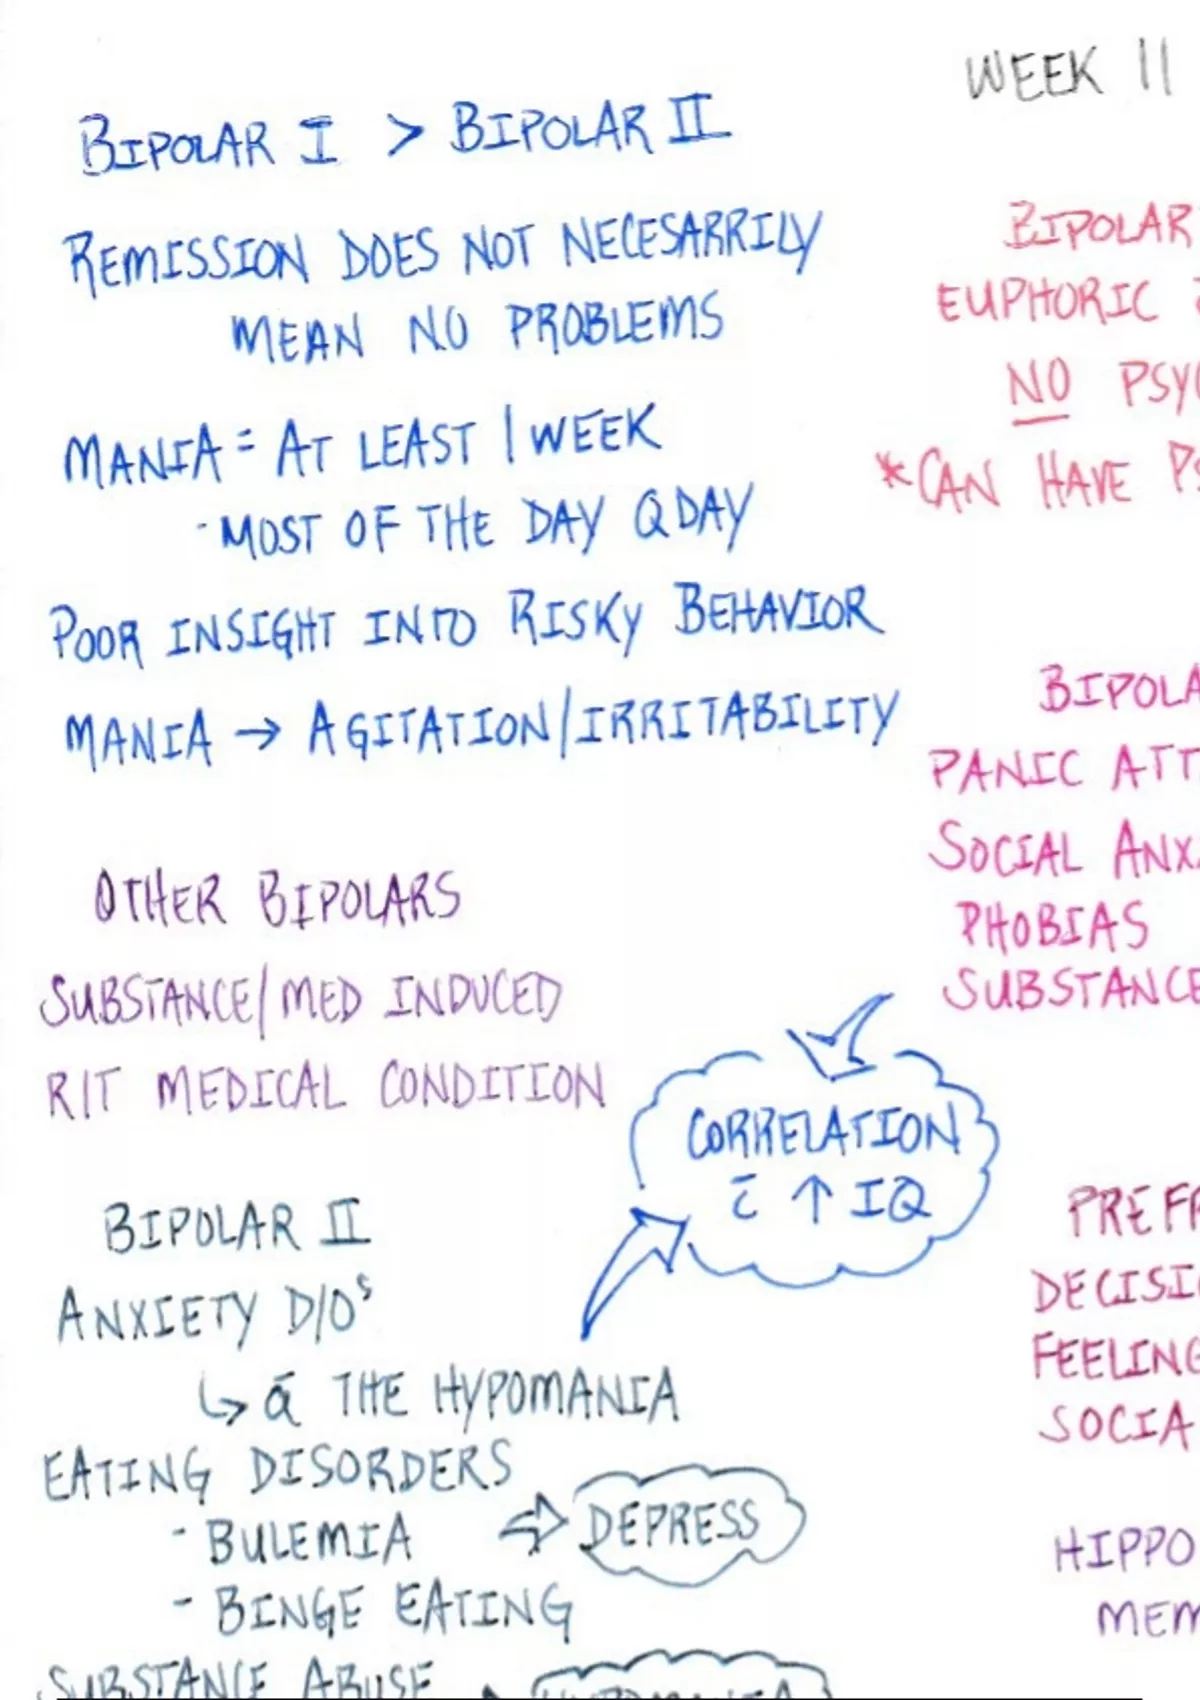 WEEK 11
BIPOLAR I > BIPOLAR II
REMISSION DOES NOT NECESARRILY
MEAN NO PROBLEMS
MANIA = AT LEAST 1 WEEK
· MOST OF THE DAY Q DAY
POOR INSIGHT INTO RISKY BEHAVIOR
MANIA → AGITATION/IRRITABILITY
OTHER BIPOLARS
SUBSTANCE/MED INDUCED
R/T MEDICAL CONDITION
CORRELATION
c̄ ↑ IQ
BIPOLAR II
ANXIETY D/OS
↳ ā THE HYPOMANIA
EATING DISORDERS
- BULEMIA
- BINGE EATING
⇒ DEPRESS
SUBSTANCE ABUSE
HYPOMANIA
BIPOLAR
EUPHORIC
NO PSYC
*CAN HAVE PS
BIPOLA
PANIC ATT
SOCIAL ANX
PHOBIAS
SUBSTANCE
PREFR
DECISI
FEELING
SOCIA
HIPPO
MEM